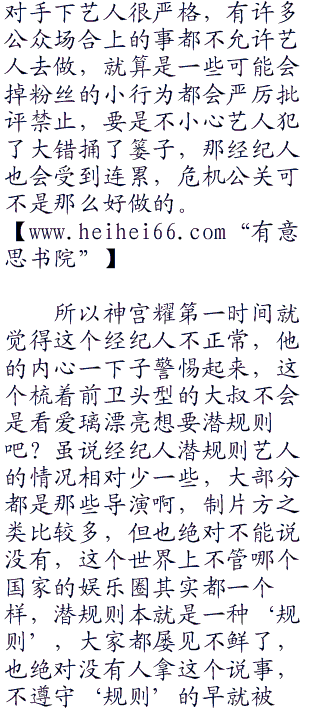 对手下艺人很严格，有许多
公众场合上的事都不允许艺
人去做，就算是一些可能会
掉粉丝的小行为都会严厉批
评禁止，要是不小心艺人犯
了大错捅了篓子，那经纪人
也会受到连累，危机公关可
不是那么好做的。
【www.heihei66.com“有意
思书院”】
所以神宫耀第一时间就
觉得这个经纪人不正常，他
的内心一下子警惕起来，这
个梳着前卫头型的大叔不会
是看爱璃漂亮想要潜规则
吧？虽说经纪人潜规则艺人
的情况相对少一些，大部分
都是那些导演啊，制片方之
类比较多，但也绝对不能说
没有，这个世界上不管哪个
国家的娱乐圈其实都一个
样，潜规则本就是一种‘规
则’，大家都屡见不鲜了，
也绝对没有人拿这个说事，
不遵守‘规则’的早就被